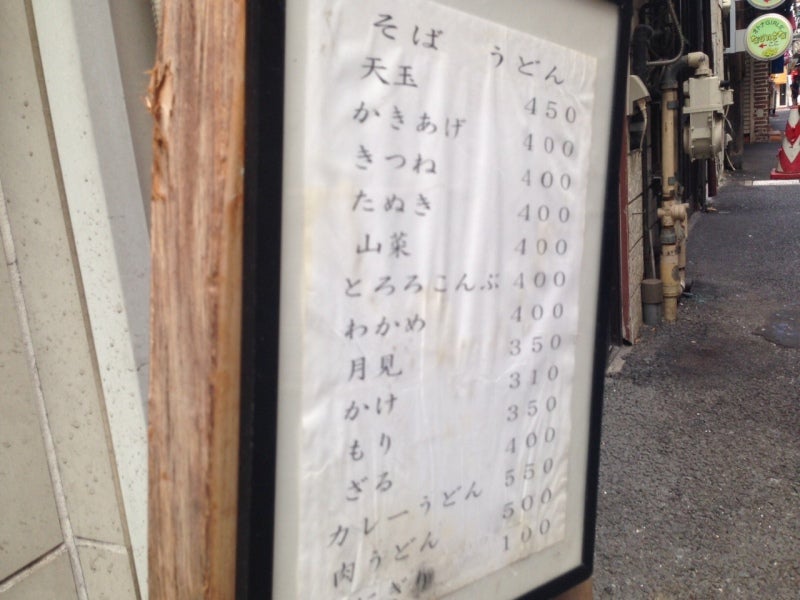 そば うどん
天玉 450
かきあげ 400
きつね 400
たぬき 400
山菜 400
とろろこんぶ 400
わかめ 400
月見 350
かけ 310
もり 350
ざる 400
カレーうどん 550
肉うどん 500
にぎり 100